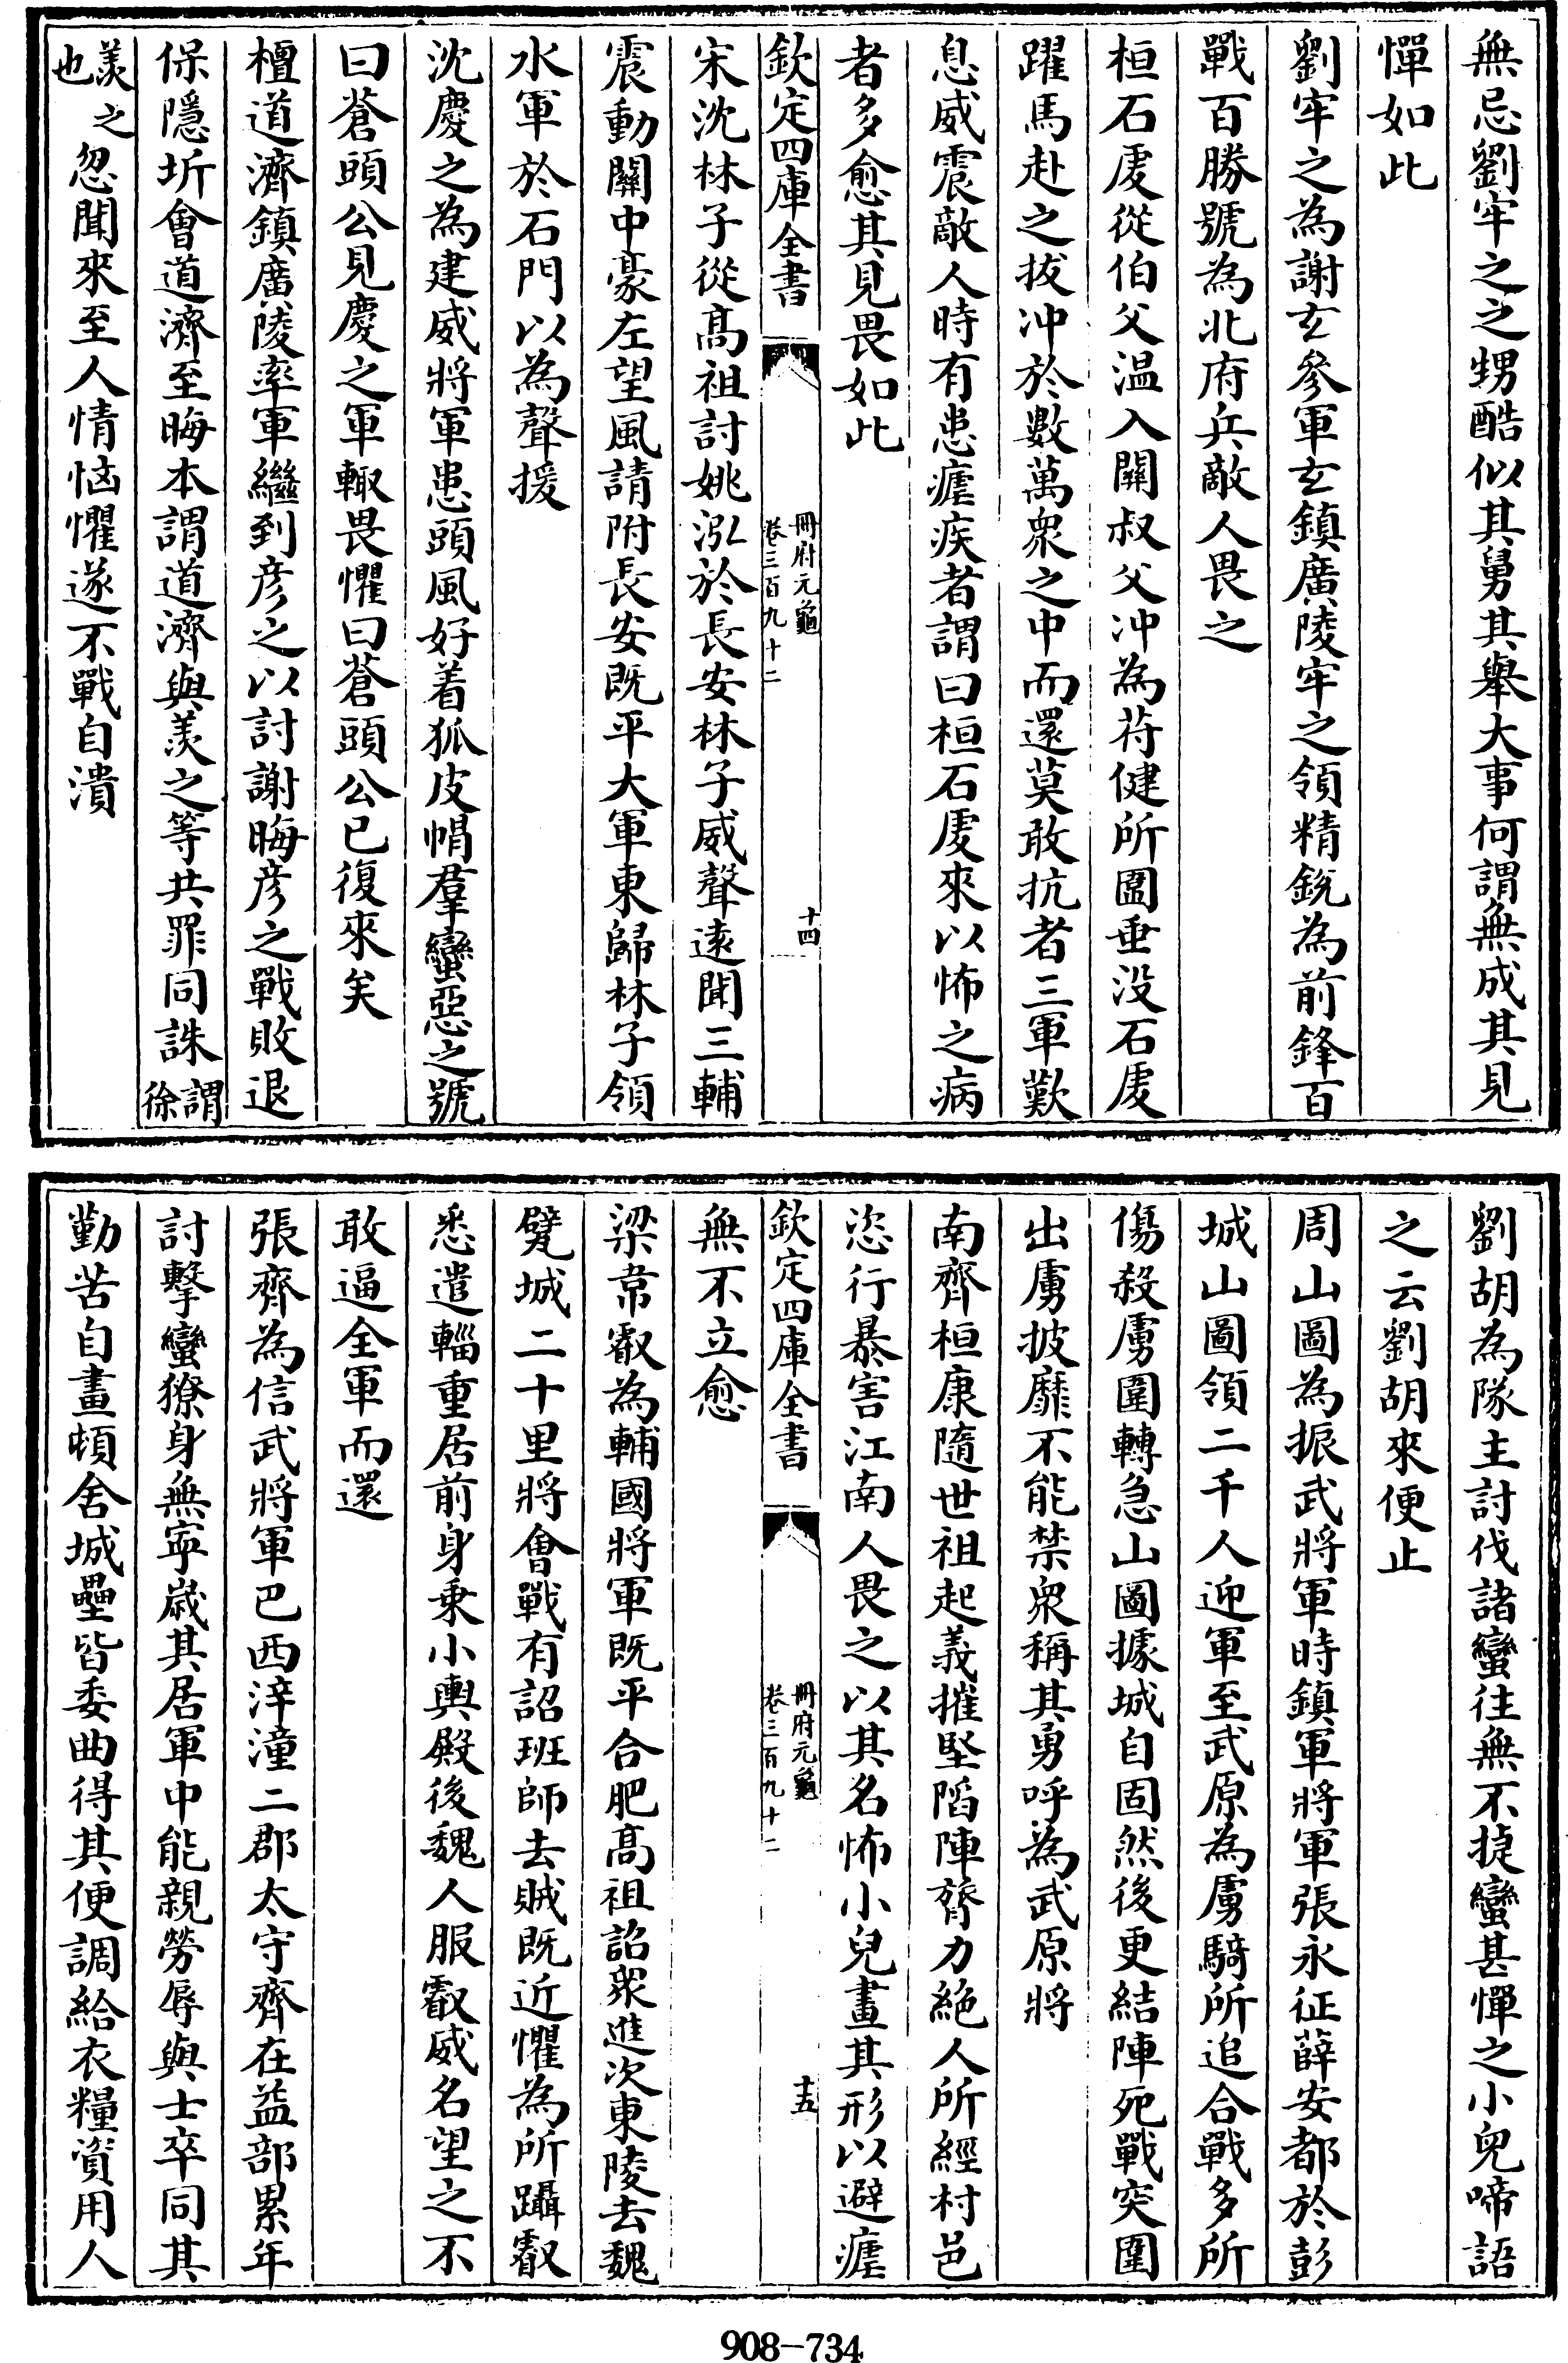 無忌劉牢之之甥酷似其舅其舉大事何謂無成其見
憚如此
劉牢之為謝玄參軍玄鎮廣陵牢之領精銳為前鋒百
戰百勝號為北府兵敵人畏之
桓石䖍從伯父温入關叔父冲為苻健所圍垂没石䖍
躍馬赴之拔冲於數萬衆之中而還莫敢抗者三軍歎
息威震敵人時有患瘧疾者謂曰桓石䖍來以怖之病
者多愈其見畏如此
欽定四庫全書
冊府元龜
卷三百九十二
十四
宋沈林子從高祖討姚泓於長安林子威聲逺聞三輔
震動關中豪左望風請附長安既平大軍東歸林子領
水軍於石門以為聲援
沈慶之為建威將軍患頭風好着狐皮帽羣蠻惡之號
曰蒼頭公見慶之軍輙畏懼曰蒼頭公已復來矣
檀道濟鎮廣陵率軍繼到彦之以討謝晦彦之戰敗退
保隱圻會道濟至晦本謂道濟與羨之等共罪同誅謂徐
羨之也忽聞來至人情惱懼遂不戰自潰
劉胡為隊主討伐諸蠻往無不捷蠻甚憚之小兒啼語
之云劉胡來便止
周山圖為振武將軍時鎮軍將軍張永征薛安都於彭
城山圖領二千人迎軍至武原為虜騎所追合戰多所
傷殺虜圍轉急山圖據城自固然後更結陣死戰突圍
出虜披靡不能禁衆稱其勇呼為武原將
南齊桓康隨世祖起義摧堅陷陣膂力絶人所經村邑
恣行暴害江南人畏之以其名怖小兒畫其形以避瘧
欽定四庫全書
冊府元龜
卷三百九十二
十五
無不立愈
梁韋叡為輔國將軍既平合肥高祖詔衆進次東陵去魏
甓城二十里將會戰有詔班師去賊既近懼為所躡叡
悉遣輜重居前身乗小輿殿後魏人服叡威名望之不
敢逼全軍而還
張齊為信武將軍巴西涬潼二郡太守齊在益部累年
討擊蠻獠身無寧嵗其居軍中能親勞辱與士卒同其
勤苦自畫頓舍城壘皆委曲得其便調給衣糧資用人
908-734